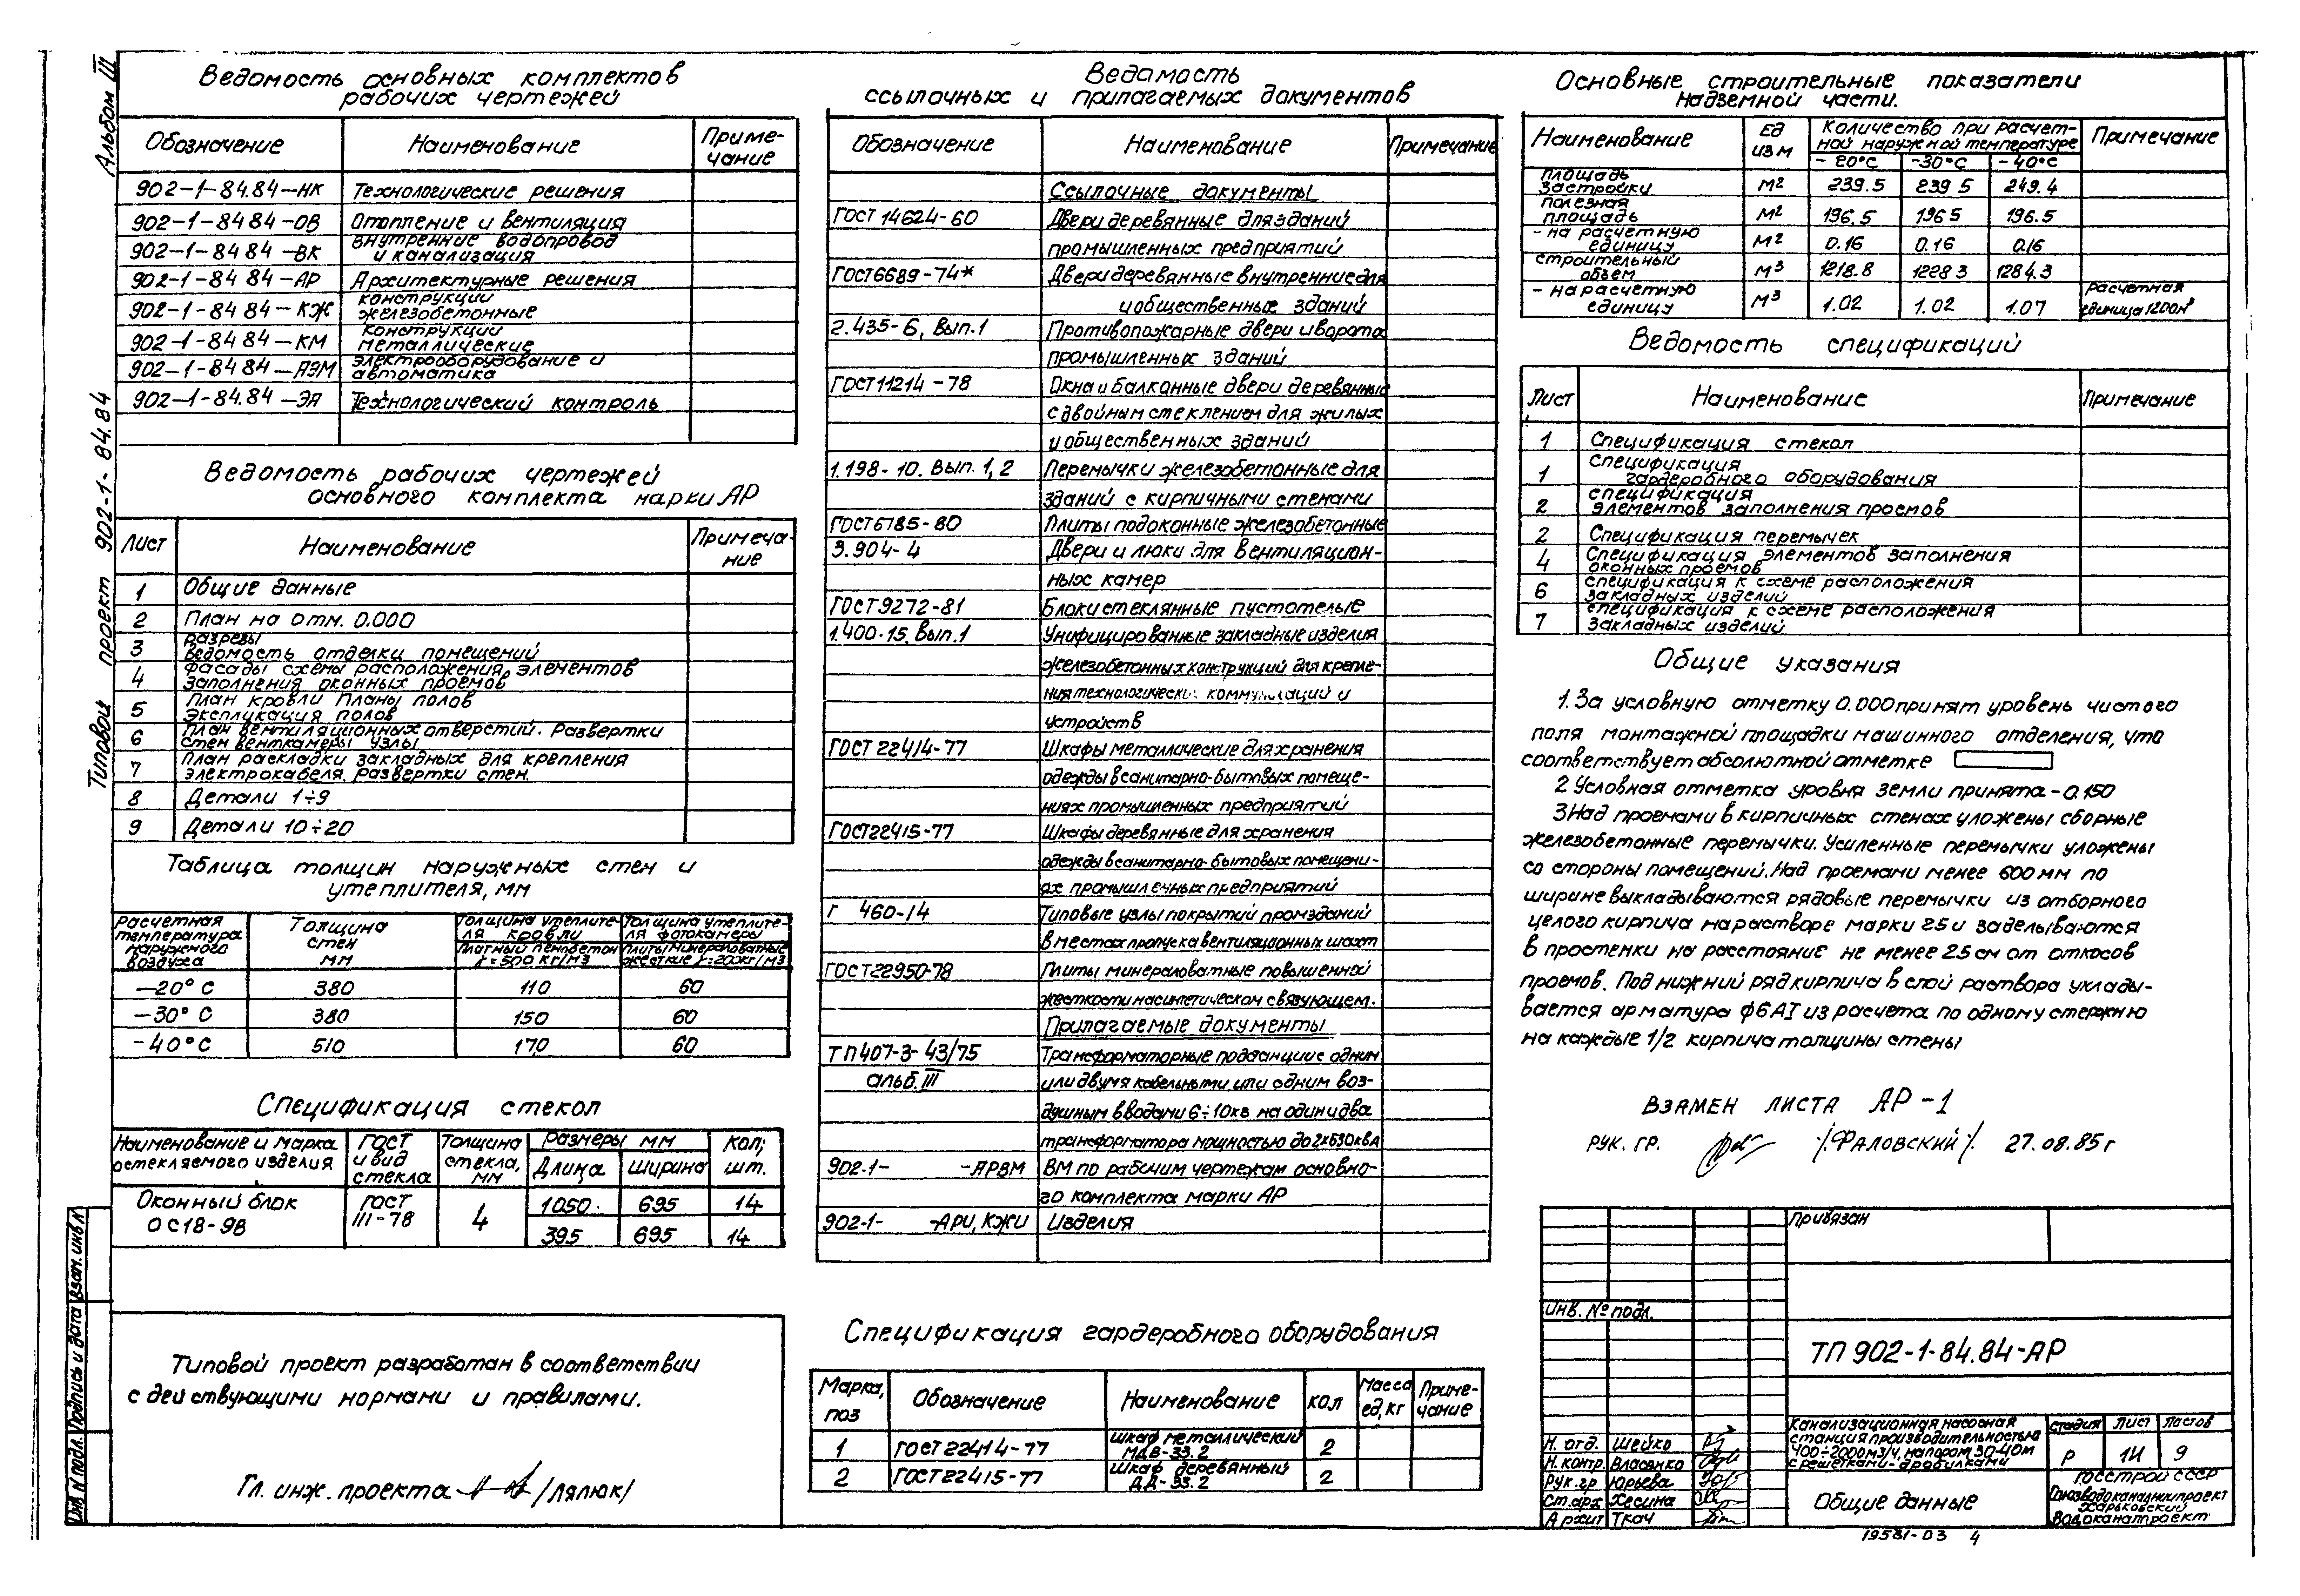 Альбом III
Типовой проект 902-1-84.84
Ведомость основных комплектов
рабочих чертежей
Обозначение Наименование Приме-
чание
902-1-84.84-НК Технологические решения
902-1-84 84-ОВ Отопление и вентиляция
902-1-84 84-ВК Внутренние водопровод
и канализация
902-1-84 84-АР Архитектурные решения
902-1-84 84-КЖ Конструкции
железобетонные
902-1-84 84-КМ Конструкции
металлические
902-1-84 84-АЭМ Электрооборудование и
автоматика
902-1-84.84-ЭА Технологический контроль
Ведомость рабочих чертежей
основного комплекта марки АР
Лист Наименование Примеча-
ние
1 Общие данные
2 План на отм. 0.000
3 Разрезы
Ведомость отделки помещений
4 Фасады схемы расположения элементов
заполнения оконных проемов
5 План кровли Планы полов
Экспликация полов
6 План вентиляционных отверстий. Развертки
стен венткамеры узлы
7 План раскладки закладных для крепления
электрокабеля. Развертки стен.
8 Детали 1÷9
9 Детали 10÷20
Таблица толщин наружных стен и
утеплителя, мм
Расчетная
температура
наружного
воздуха
Толщина
стен
мм
Толщина утеплите-
ля кровли
Плитный пенобетон
γ=500 кг/м3
Толщина утеплите-
ля фотокамеры
Плиты минераловатные
жесткие γ=200кг/м3
-20°С 380 110 60
-30°С 380 150 60
-40°С 510 170 60
Спецификация стекол
Наименование и марка
остекляемого изделия
ГОСТ
и вид
стекла
Толщина
стекла,
мм
Размеры мм
Длина Ширина
Кол;
шт.
Оконный блок
ОС18-9В
ГОСТ
111-78
4
1050 695 14
395 695 14
Типовой проект разработан в соответствии
с действующими нормами и правилами.
Гл. инж. проекта /Лялюк/
Инв N подл. Подпись и дата Взам. инв N
Ведомость
ссылочных и прилагаемых документов
Обозначение Наименование Примечание
Ссылочные документы
ГОСТ 14624-60 Двери деревянные для зданий
промышленных предприятий
ГОСТ6689-74* Двери деревянные внутренние для
и общественных зданий
2.435-6, Вып.1 Противопожарные двери и ворота
промышленных зданий
ГОСТ11214-78 Окна и балконные двери деревянные
с двойным стеклением для жилых
и общественных зданий
1.198-10. Вып. 1, 2 Перемычки железобетонные для
зданий с кирпичными стенами
ГОСТ6785-80 Плиты подоконные железобетонные
3.904-4 Двери и люки для вентиляцион-
ных камер
ГОСТ9272-81 Блоки стеклянные пустотелые
1.400-15. Вып.1 Унифицированные закладные изделия
железобетонных конструкций для крепле-
ния технологических коммуникаций и
устройств
ГОСТ 22414-77 Шкафы металлические для хранения
одежды в санитарно-бытовых помеще-
ниях промышленных предприятий
ГОСТ22415-77 Шкафы деревянные для хранения
одежды в санитарно-бытовых помещени-
ях промышленных предприятий
Г 460-14 Типовые узлы покрытий промзданий
в местах пропуска вентиляционных шахт
ГОСТ22950-78 Плиты минераловатные повышенной
жесткости на синтетическом связующем.
Прилагаемые документы
ТП407-3-43/75 Трансформаторные подстанции с одним
альб. III или двумя кабельными или одним воз-
душным вводами 6÷10кв на один и два
трансформатора мощностью до 2х630кВА
902-1- -АРВМ ВМ по рабочим чертежам основно-
го комплекта марки АР
902-1- -АРИ, КЖИ Изделия
Спецификация гардеробного оборудования
Марка,
поз
Обозначение Наименование кол Масса
ед, кг
Приме-
чание
1 ГОСТ22414-77 Шкаф металлический
МДВ-33.2 2
2 ГОСТ22415-77 Шкаф деревянный
ДД-33.2 2
Основные строительные показатели
надземной части.
Наименование Ед
изм
Количество при расчет-
ной наружной температуре
-20°С -30°С -40°С
Примечание
Площадь
застройки М2 239.5 239 5 249.4
Полезная
площадь М2 196.5 196 5 196.5
- на расчетную
единицу М2 0.16 0.16 0.16
Строительный
объем М3 1218.8 1228 3 1284.3
- на расчетную
единицу М3 1.02 1.02 1.07 Расчетная
единица 1200м3
Ведомость спецификаций
Лист Наименование Примечание
1 Спецификация стекол
1 Спецификация
гардеробного оборудования
2 Спецификация
элементов заполнения проемов
2 Спецификация перемычек
4 Спецификация элементов заполнения
оконных проемов
6 Спецификация к схеме расположения
закладных изделий
7 Спецификация к схеме расположения
закладных изделий
Общие указания
1. За условную отметку 0.000 принят уровень чистого
пола монтажной площадки машинного отделения, что
соответствует абсолютной отметке
2 Условная отметка уровня земли принята -0.150
3 Над проемами в кирпичных стенах уложены сборные
железобетонные перемычки. Усиленные перемычки уложены
со стороны помещений. Над проемами менее 600 мм по
ширине выкладываются рядовые перемычки из отборного
целого кирпича на растворе марки 25 и заделываются
в простенки на расстояние не менее 25 см от откосов
проемов. Под нижний ряд кирпича в слой раствора уклады-
вается арматура ф6АI из расчета по одному стержню
на каждые 1/2 кирпича толщины стены
ВЗАМЕН ЛИСТА АР-1
РУК. ГР. /ФАЛОВСКИЙ/ 27.08.85г
Привязан
Инв. № подл.
ТП 902-1-84.84-АР
Н. отд. Шейко
Н. контр. Власенко
Рук. гр Юрьева
Ст. арх Хесина
Архит Ткач
Канализационная насосная
станция производительностью
400÷2000м3/ч, напором 30-40м
с решетками-дробилками
Стадия Лист Листов
Р 1И 9
Общие данные
Госстрой СССР
Союзводоканалниипроект
Харьковский
Водоканалпроект
19581-03 4